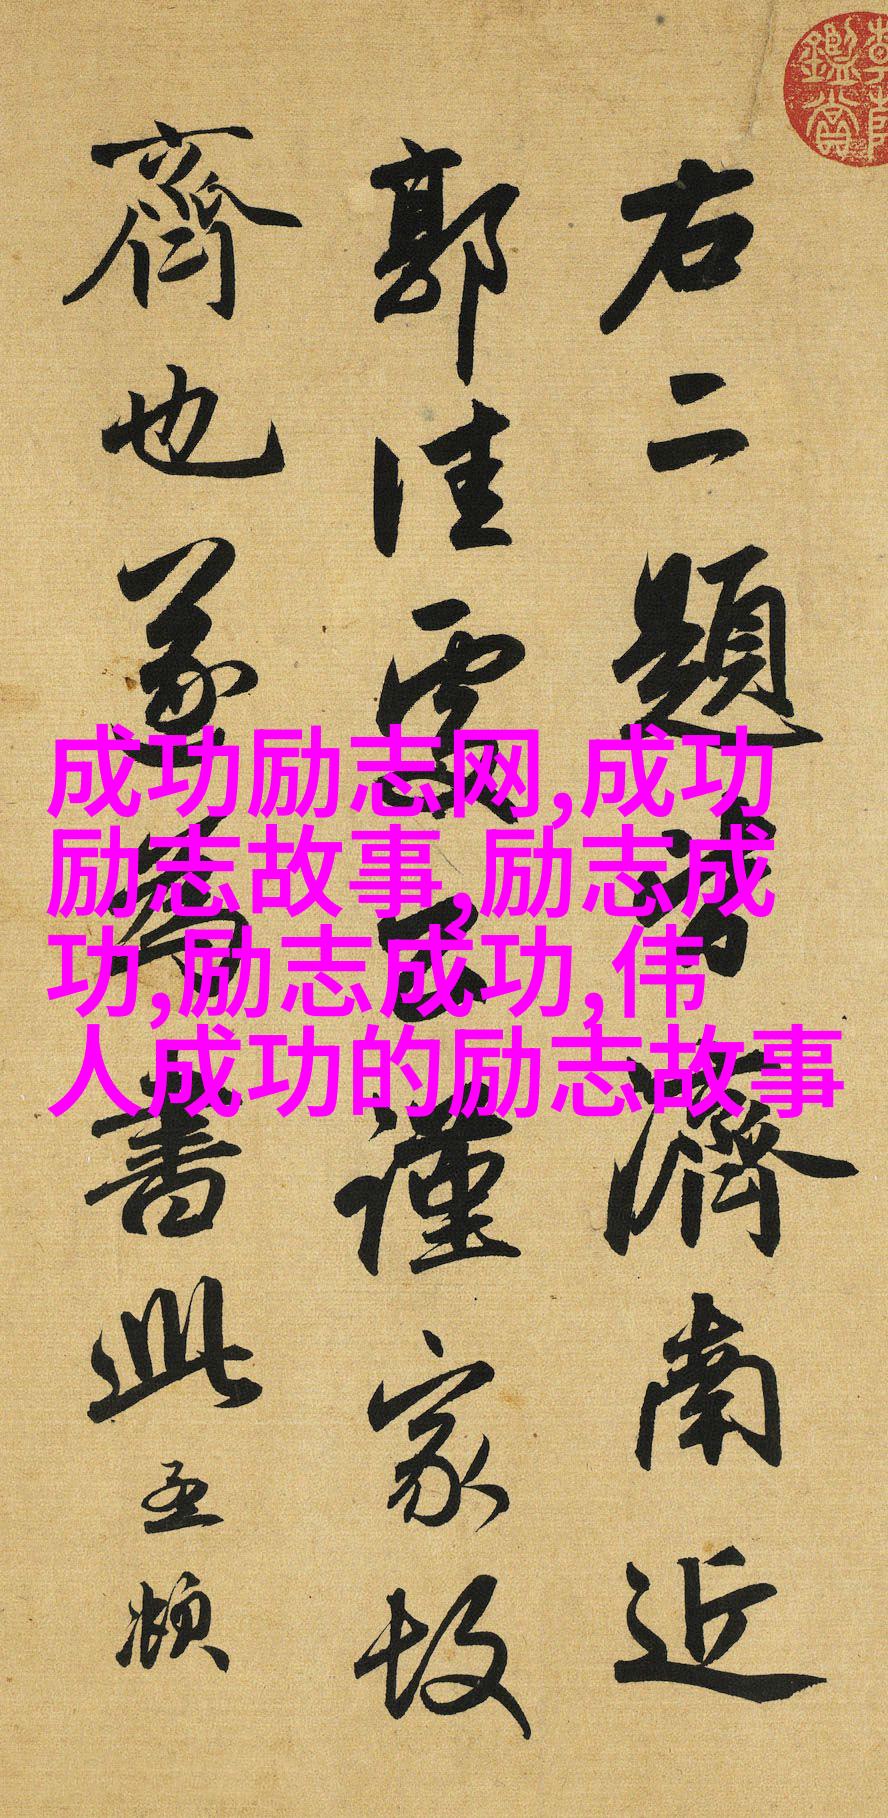 右二題皆濟南近
郭佳處公謹家故
齊也遂為書此孟頫
鑑賞
成功励志网,成功
励志故事,励志成
功,励志成功,伟
人成功的励志故事